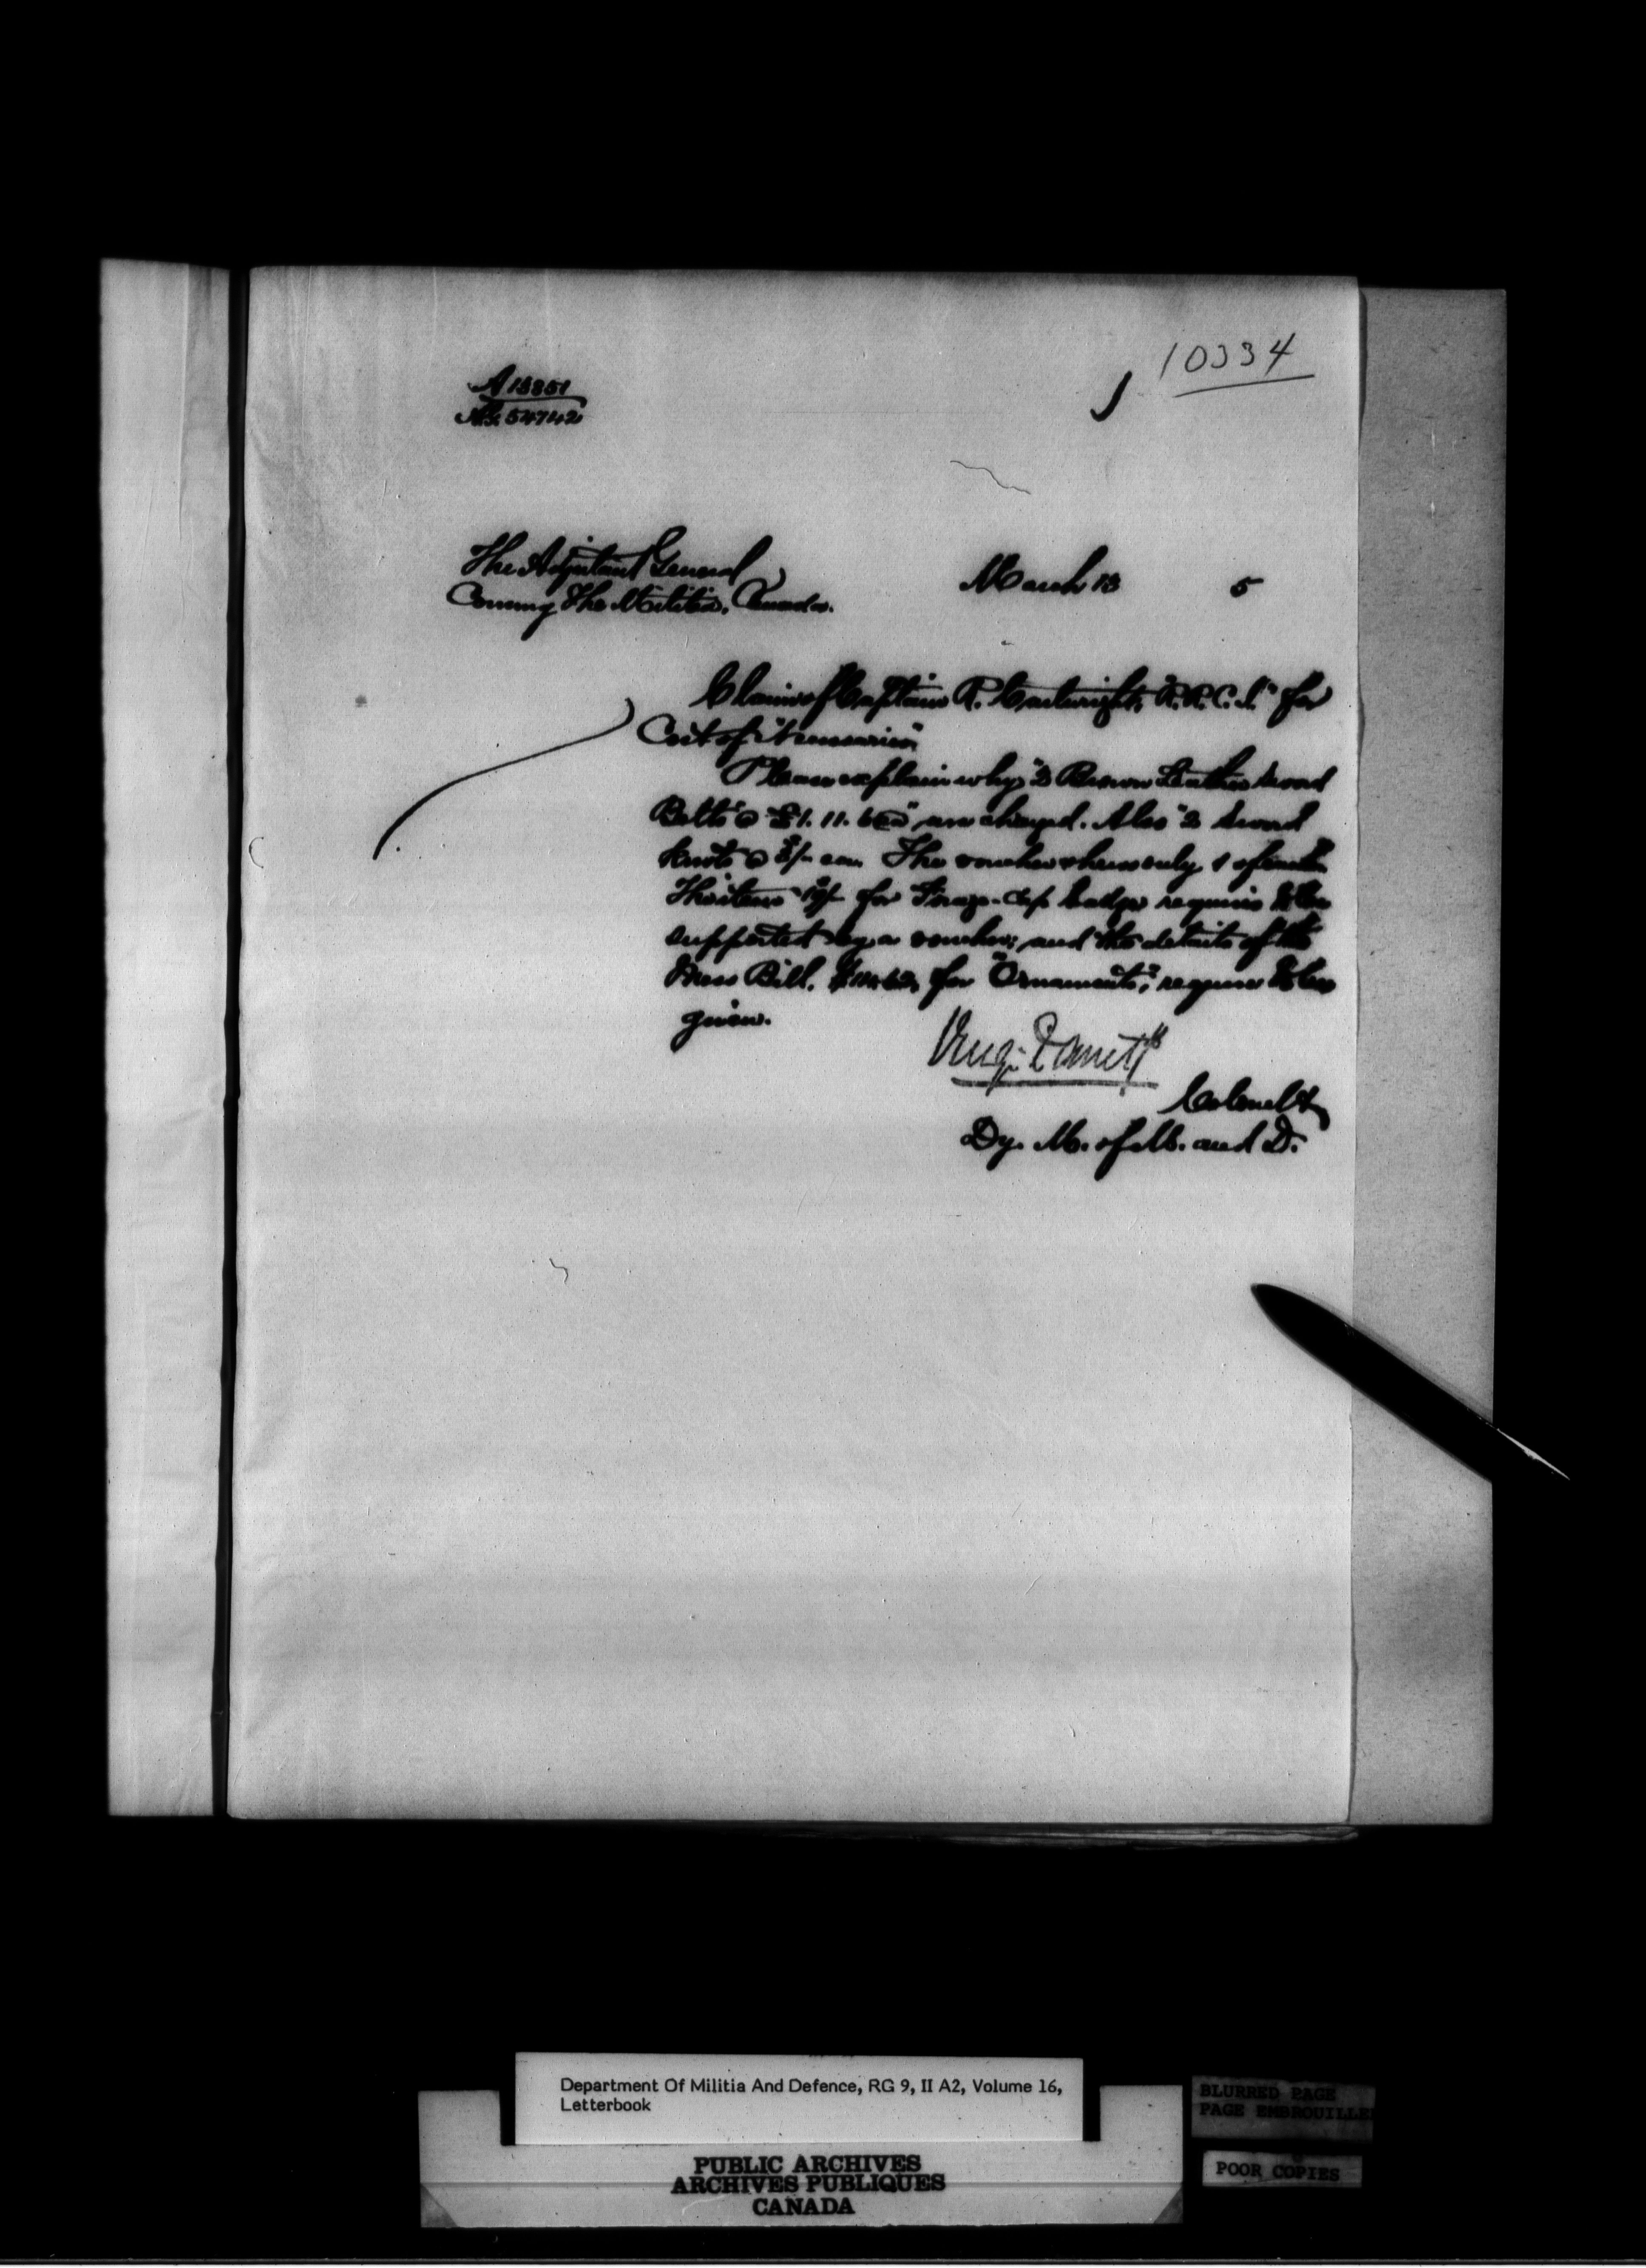 10334
A 13851
No. 54742
The Adjutant General
March 13 5
Commg The Militia, Canada.
Claim of Captain R. Cartwright, "R.R.C.I." for
Cost of "Necessaries"
Please explain why "2 Brown Leather Sword
Belts @ £1. 11. 6 ea" are charged. Also "2 Sword
Knots @ ea. The voucher shews only 1 of each
The item for Forage-Cap badges requires to be
supported by a voucher; and the details of the
Mess Bill, for "Ornaments", require to be
given.
Colonel
Dy. M. of M. and D.
Department Of Militia And Defence, RG 9, II A2, Volume 16,
Letterbook
PUBLIC ARCHIVES
ARCHIVES PUBLIQUES
CANADA
BLURRED PAGE
PAGE EMBROUILLE
POOR COPIES